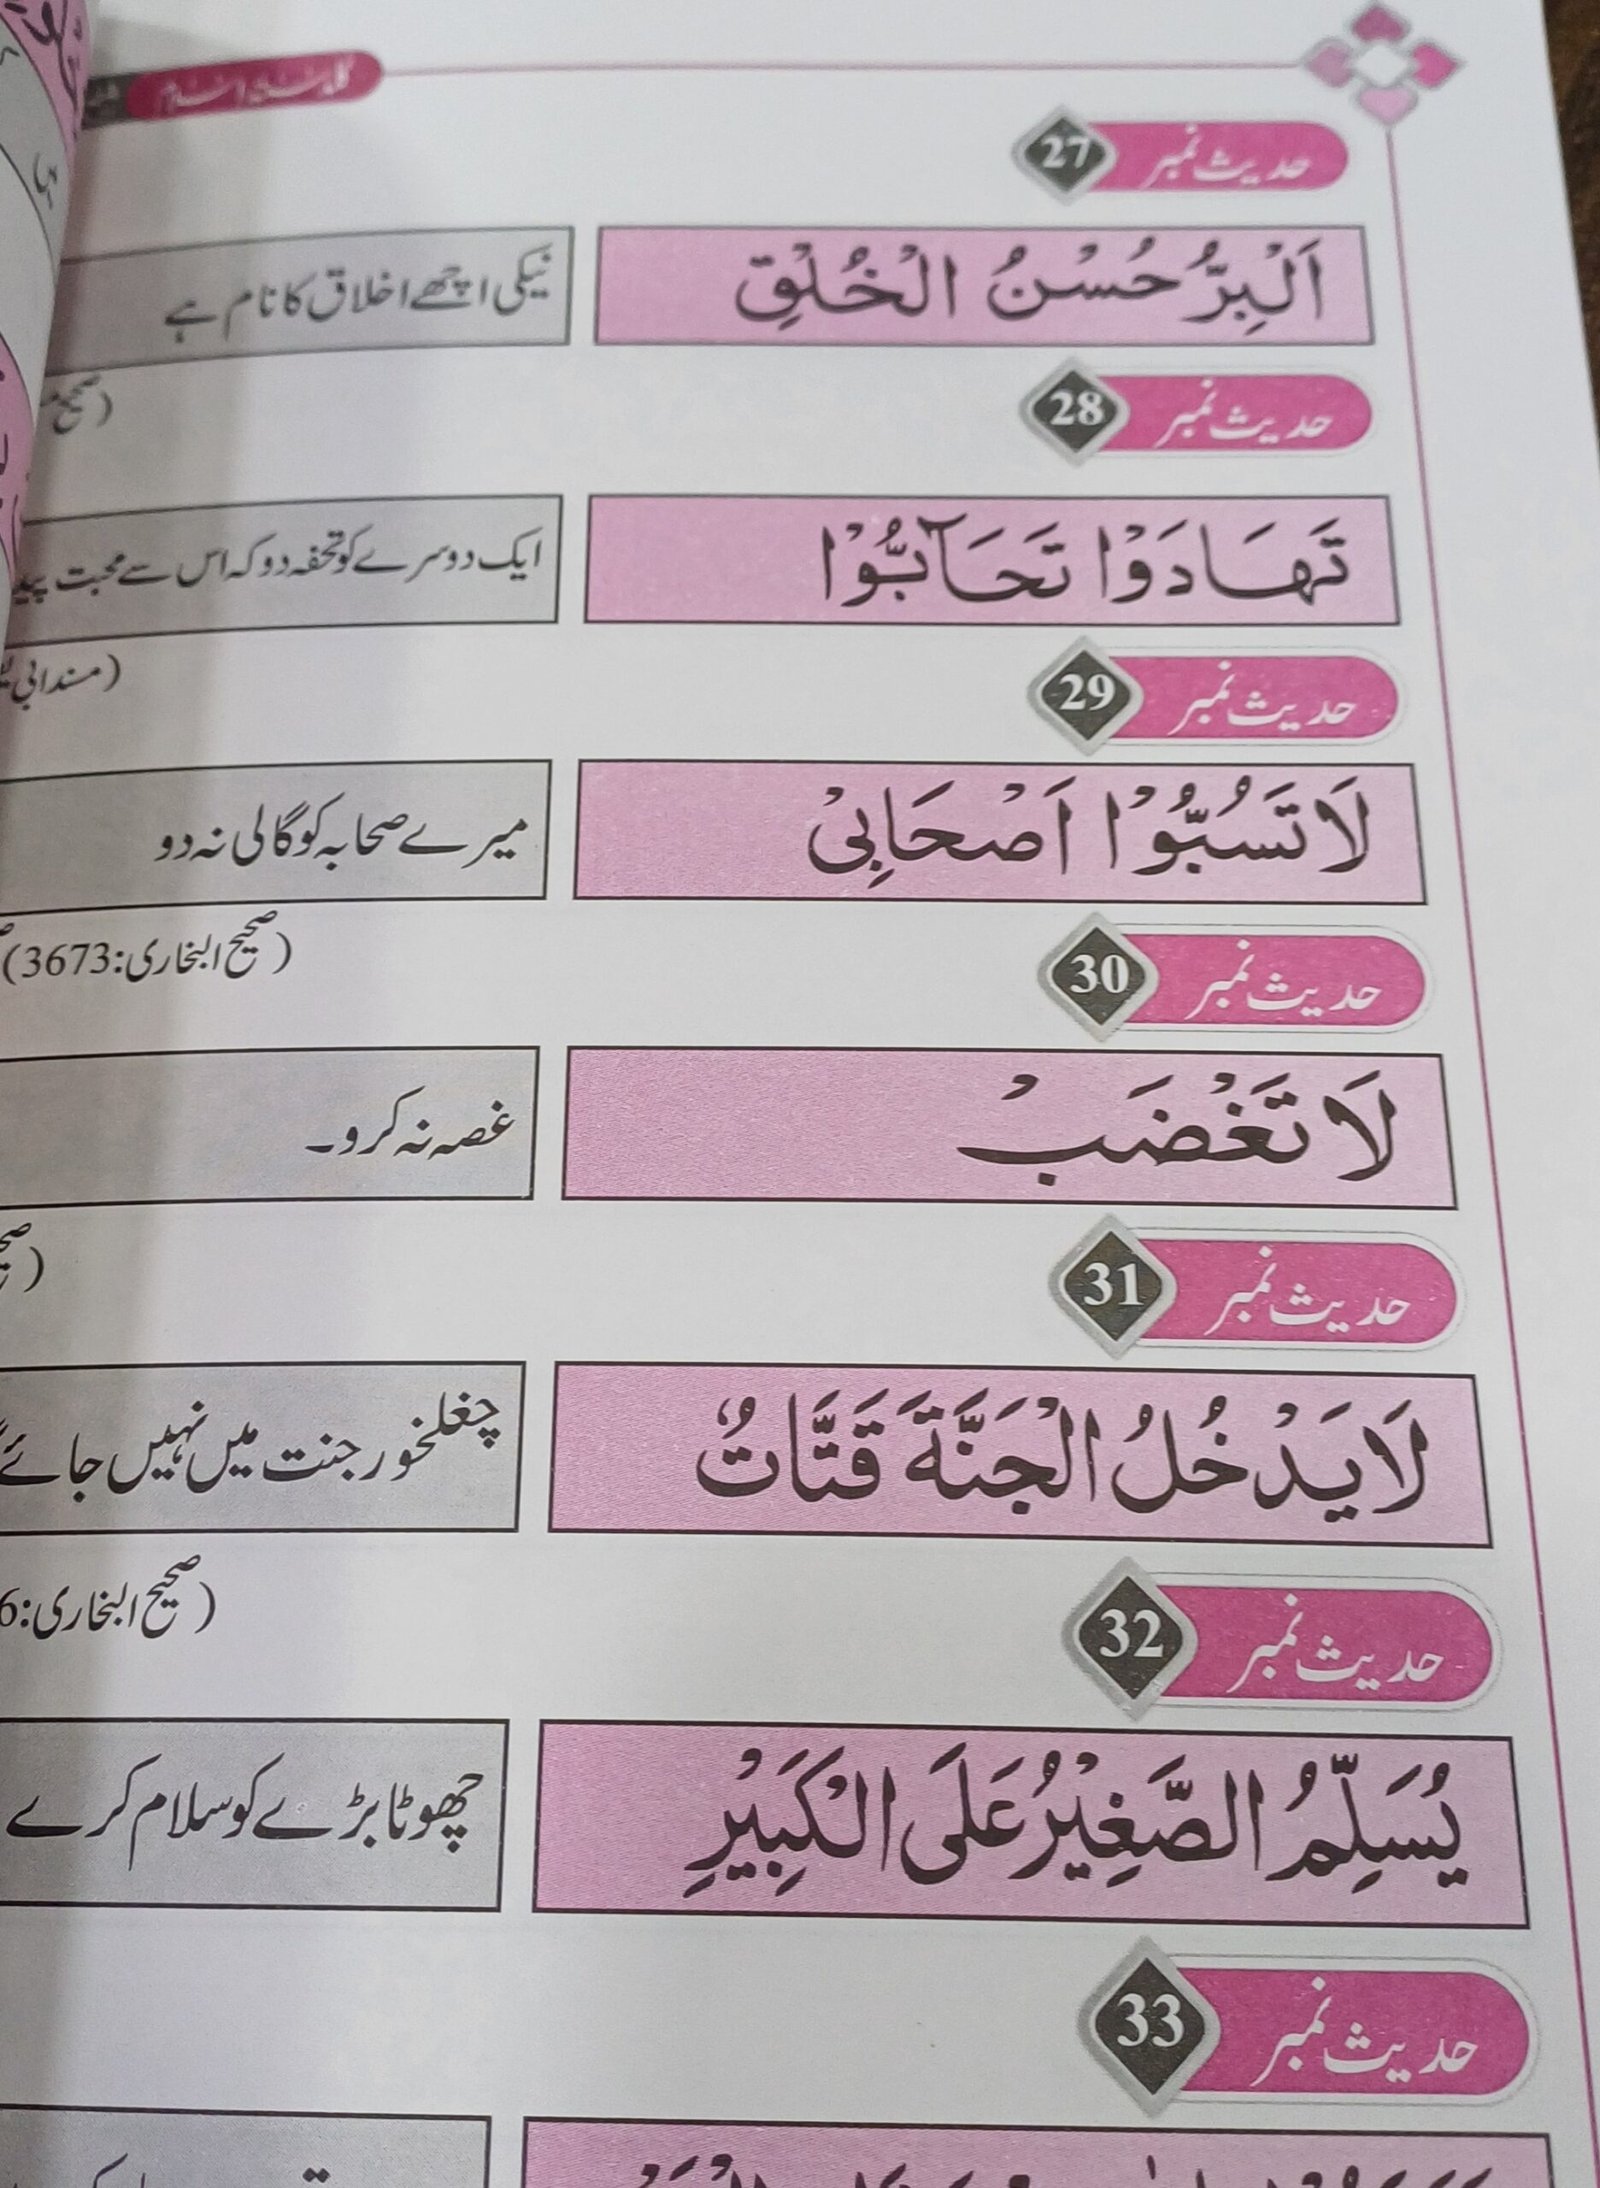 حدیث نمبر 27
اَلْبِرُّ حُسْنُ الْخُلُقِ
نیکی اچھے اخلاق کا نام ہے
حدیث نمبر 28
تَهَادَوْا تَحَآبُّوْا
ایک دوسرے کو تحفہ دو کہ اس سے محبت
حدیث نمبر 29
لَا تَسُبُّوْا اَصْحَابِیْ
میرے صحابہ کو گالی نہ دو
(صحیح البخاری:3673)
حدیث نمبر 30
لَا تَغْضَبْ
غصہ نہ کرو۔
حدیث نمبر 31
لَا يَدْخُلُ الْجَنَّةَ قَتَّاتٌ
چغلخور جنت میں نہیں جائے
(صحیح البخاری:6
حدیث نمبر 32
يُسَلِّمُ الصَّغِيْرُ عَلَى الْكَبِيْرِ
چھوٹا بڑے کو سلام کرے
حدیث نمبر 33